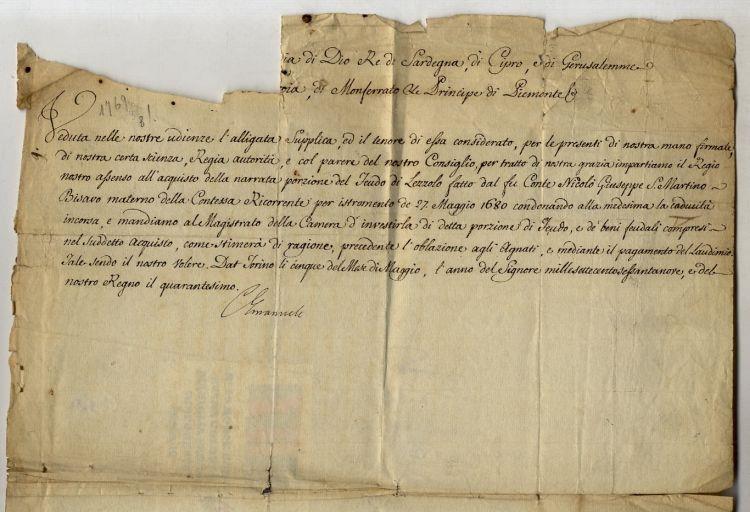 ia di Dio Re di Sardegna, di Cipro, e di Gerusalemme
oia, di Monferrato &c Principe di Piemonte &c
1769
8
Veduta nelle nostre udienze l'alligata Supplica, ed il tenore di essa considerato, per le presenti di nostra mano firmate,
di nostra certa scienza, Regia autorità, e col parere del nostro Consiglio, per tratto di nostra grazia impartiamo il Regio
nostro assenso all'acquisto della narrata porzione del Feudo di Lozzolo fatto dal fu Conte Nicoli Giuseppe S. Martino
Bisavo materno della Contessa Ricorrente per istromento de 27 Maggio 1680 condonando alla medesima la caducità
incorsa e mandiamo al Magistrato della Camera d'investirla di detta porzione di Feudo, e de' beni feudali compresi
nel suddetto Acquisto, come stimerà di ragione, precedente l'oblazione agli Agnati, e mediante il pagamento del Laudimio
Tale sendo il nostro Volere. Dat. Torino li cinque del Mese di Maggio, l'anno del Signore mille settecento sessantanove, e del
nostro Regno il quarantesimo.
CEmanuele